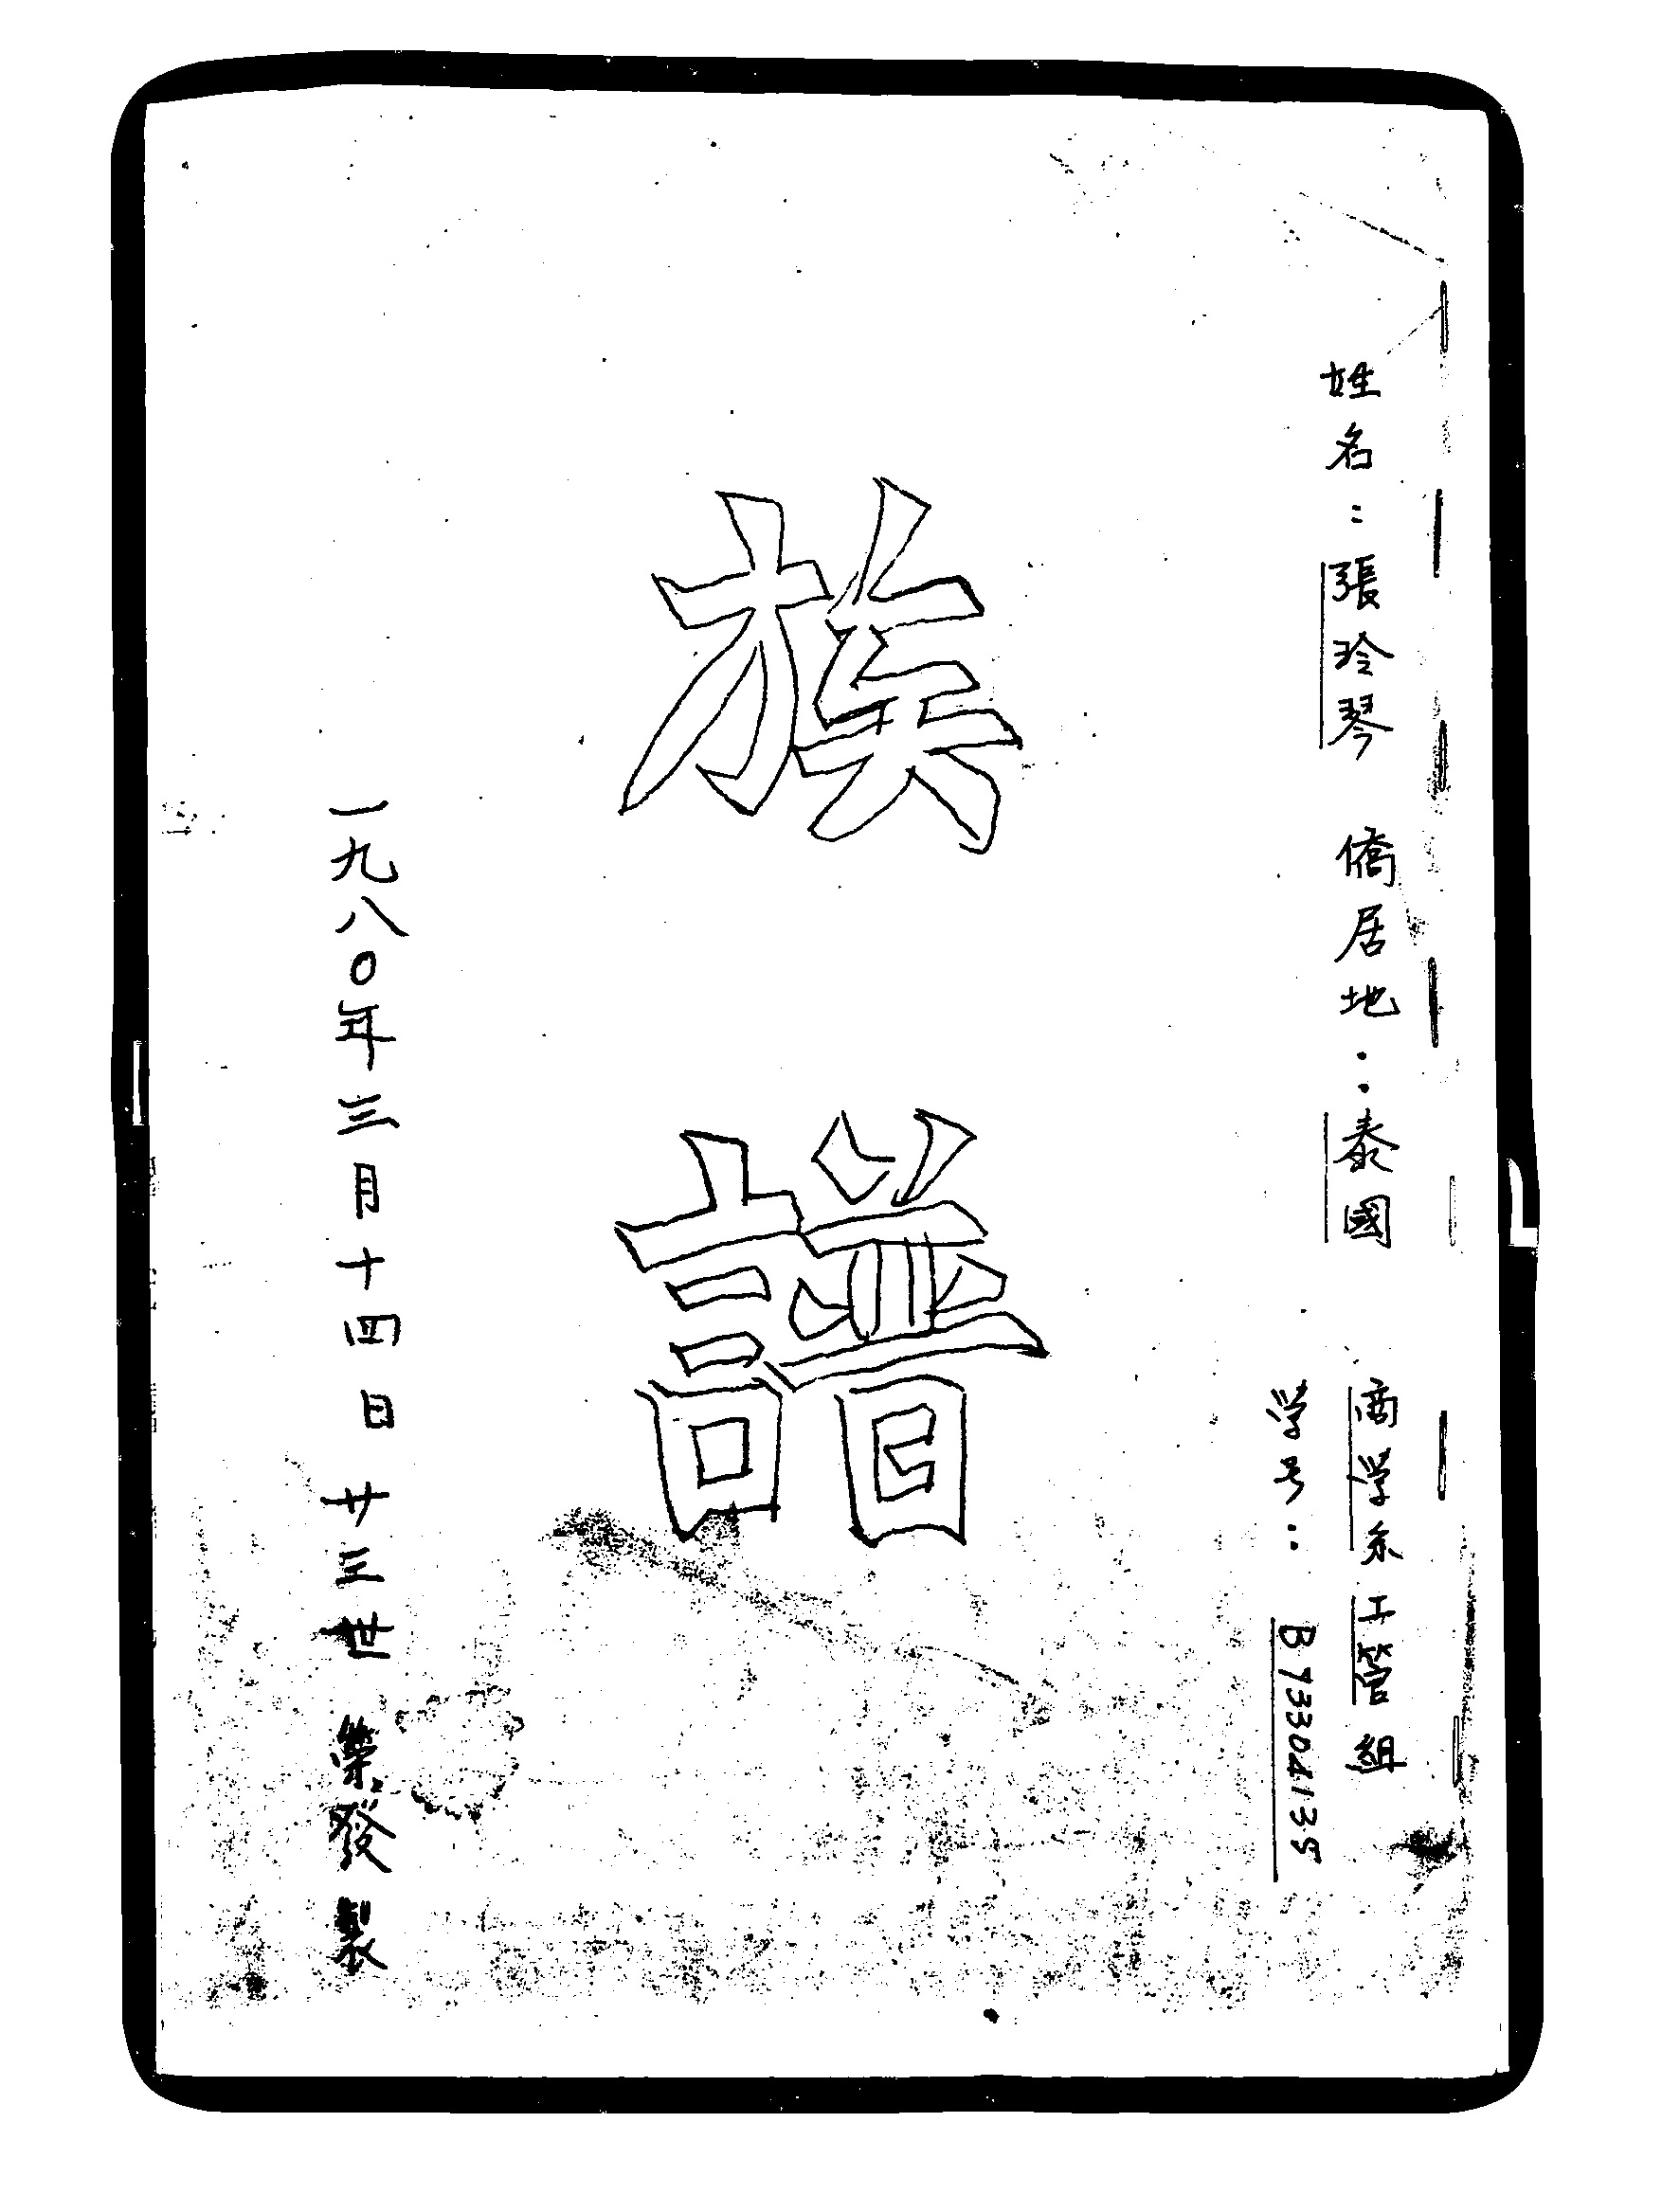 姓名：張玲琴　僑居地：泰國　商学系工管組
学号：B73304135
族譜
一九八〇年三月十四日　廿三世　榮發製